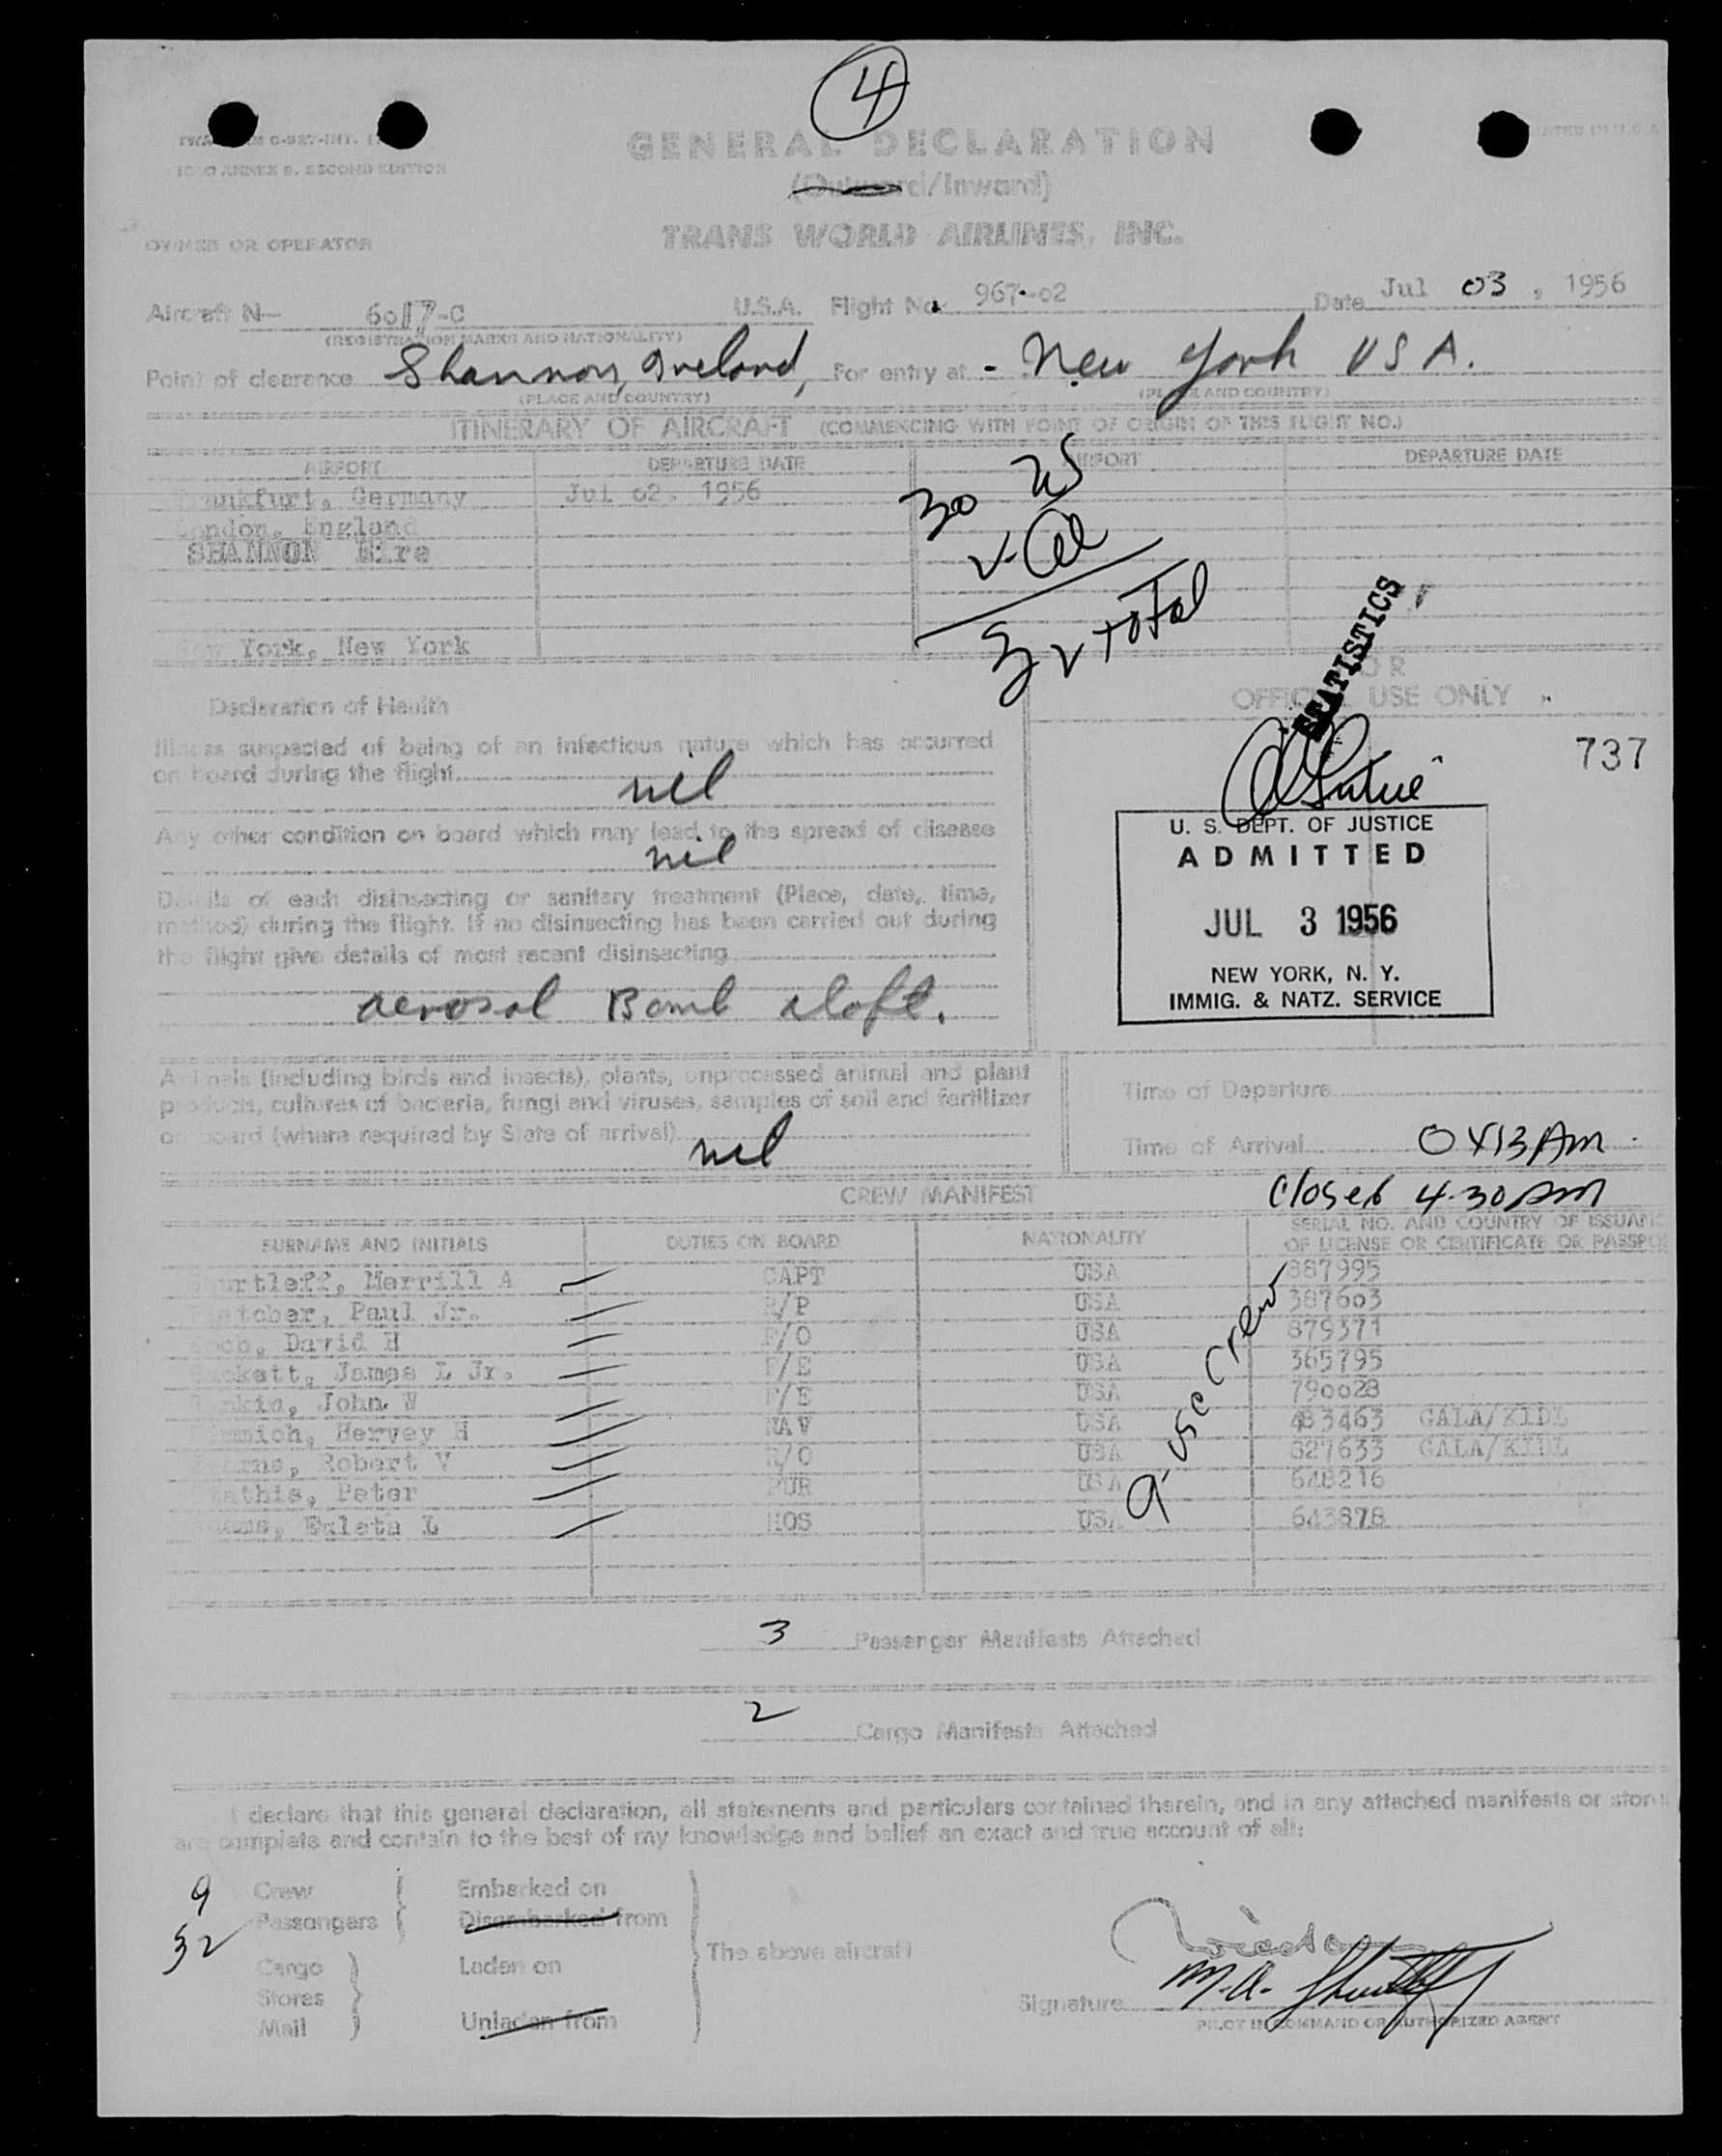 4
GENERAL DECLARATION
(Outward/Inward)
ICAO ANNEX 9, SECOND EDITION
OWNER OR OPERATOR
TRANS WORLD AIRLINES, INC.
Aircraft N- 6017-C U.S.A. Flight No. 967-02 Date Jul 03, 1956
(REGISTRATION MARKS AND NATIONALITY)
Point of clearance Shannon, Ireland, For entry at - New York USA.
(PLACE AND COUNTRY) (PLACE AND COUNTRY)
ITINERARY OF AIRCRAFT (COMMENCING WITH POINT OF ORIGIN OF THIS FLIGHT NO.)
AIRPORT DEPARTURE DATE AIRPORT DEPARTURE DATE
Frankfurt, Germany Jul 02, 1956
London, England
SHANNON Eire
New York, New York
30 US
2 al
32 total
STATISTICS
FOR
OFFICIAL USE ONLY
737
Declaration of Health
Illness suspected of being of an infectious nature which has occurred
on board during the flight
nil
Any other condition on board which may lead to the spread of disease
nil
Details of each disinsecting or sanitary treatment (Place, date, time,
method) during the flight. If no disinsecting has been carried out during
the flight give details of most recent disinsecting
aerosol Bomb aloft.
U. S. DEPT. OF JUSTICE
ADMITTED
JUL 3 1956
NEW YORK, N. Y.
IMMIG. & NATZ. SERVICE
Animals (including birds and insects), plants, unprocessed animal and plant
products, cultures of bacteria, fungi and viruses, samples of soil and fertilizer
on board (where required by State of arrival)
nil
Time of Departure
Time of Arrival 0413 AM
Closed 4.30 AM
CREW MANIFEST
SURNAME AND INITIALS DUTIES ON BOARD NATIONALITY SERIAL NO. AND COUNTRY OF ISSUANC
OF LICENSE OR CERTIFICATE OR PASSPO
Shurtleff, Merrill A CAPT USA 387995
Fletcher, Paul Jr. R/P USA 387603
David H F/O USA 879371
James L Jr. F/E USA 365795
John W F/E USA 790028
Hervey H NAV USA 483463 GALA/KIDL
Robert V R/O USA 827633 GALA/KIDL
Stathis, Peter PUR USA 648216
Euleta L HOS USA 643878
9 - USC Crew
3 Passenger Manifests Attached
2 Cargo Manifests Attached
I declare that this general declaration, all statements and particulars contained therein, and in any attached manifests or stores
are complete and contain to the best of my knowledge and belief an exact and true account of all:
9 Crew Embarked on
32 Passengers Disembarked from
The above aircraft
Cargo Laden on
Stores
Mail Unladen from
Signature M.A. Shurtleff
PILOT IN COMMAND OR AUTHORIZED AGENT